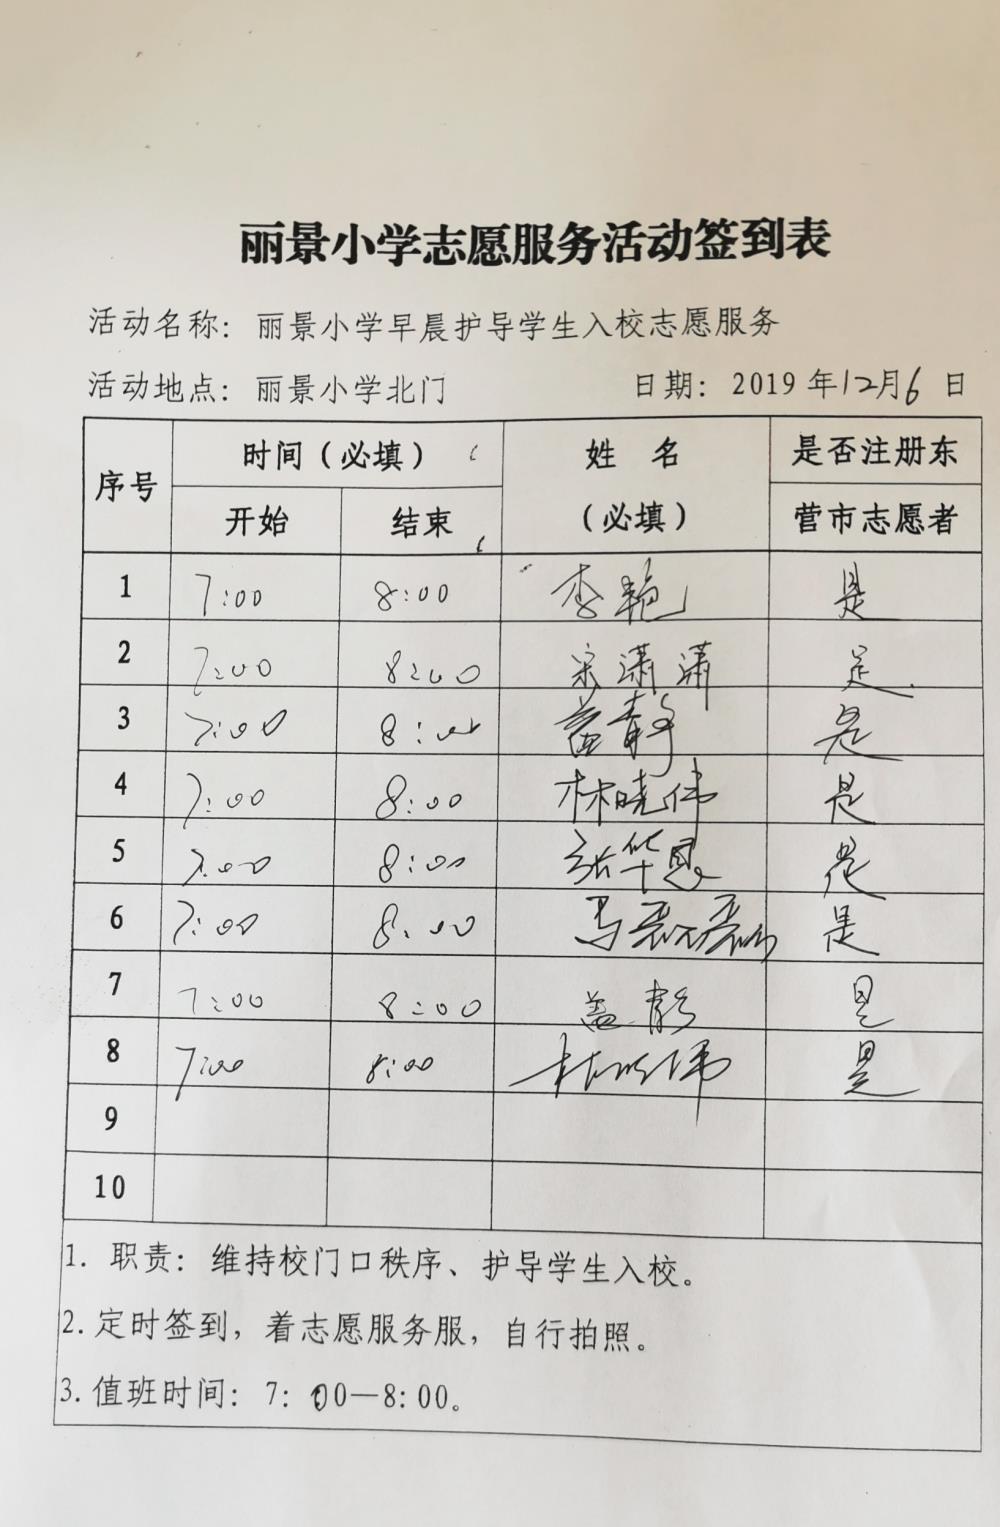 丽景小学志愿服务活动签到表
活动名称：丽景小学早晨护导学生入校志愿服务
活动地点：丽景小学北门 日期：2019年12月6日
序号 时间（必填） 姓 名 是否注册东
开始 结束 （必填） 营市志愿者
1 7:00 8:00 李艳 是
2 7:00 8:00 宋潇潇 是
3 7:00 8:00 盖静 是
4 7:00 8:00 林晓伟 是
5 7:00 8:00 是
6 7:00 8:00 马磊磊 是
7 7:00 8:00 盖静 是
8 7:00 8:00 是
9
10
1. 职责：维持校门口秩序、护导学生入校。
2. 定时签到，着志愿服务服，自行拍照。
3. 值班时间：7:00—8:00。